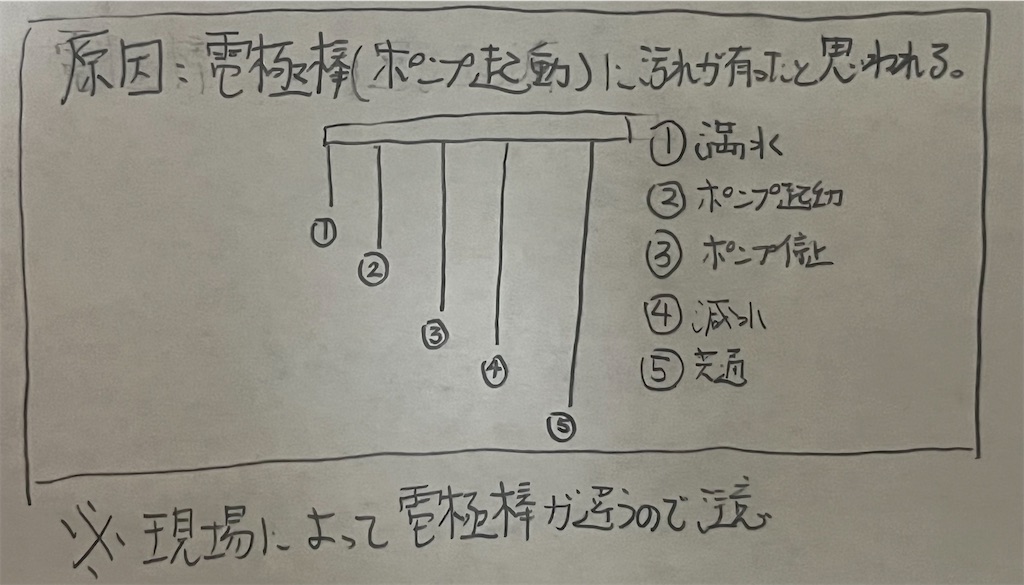 原因:電極棒(ポンプ起動)に汚れが有ったと思われる。
① 満水
② ポンプ起動
③ ポンプ停止
④ 減水
⑤ 共通
①
②
③
④
⑤
※現場によって電極棒が違うので注意